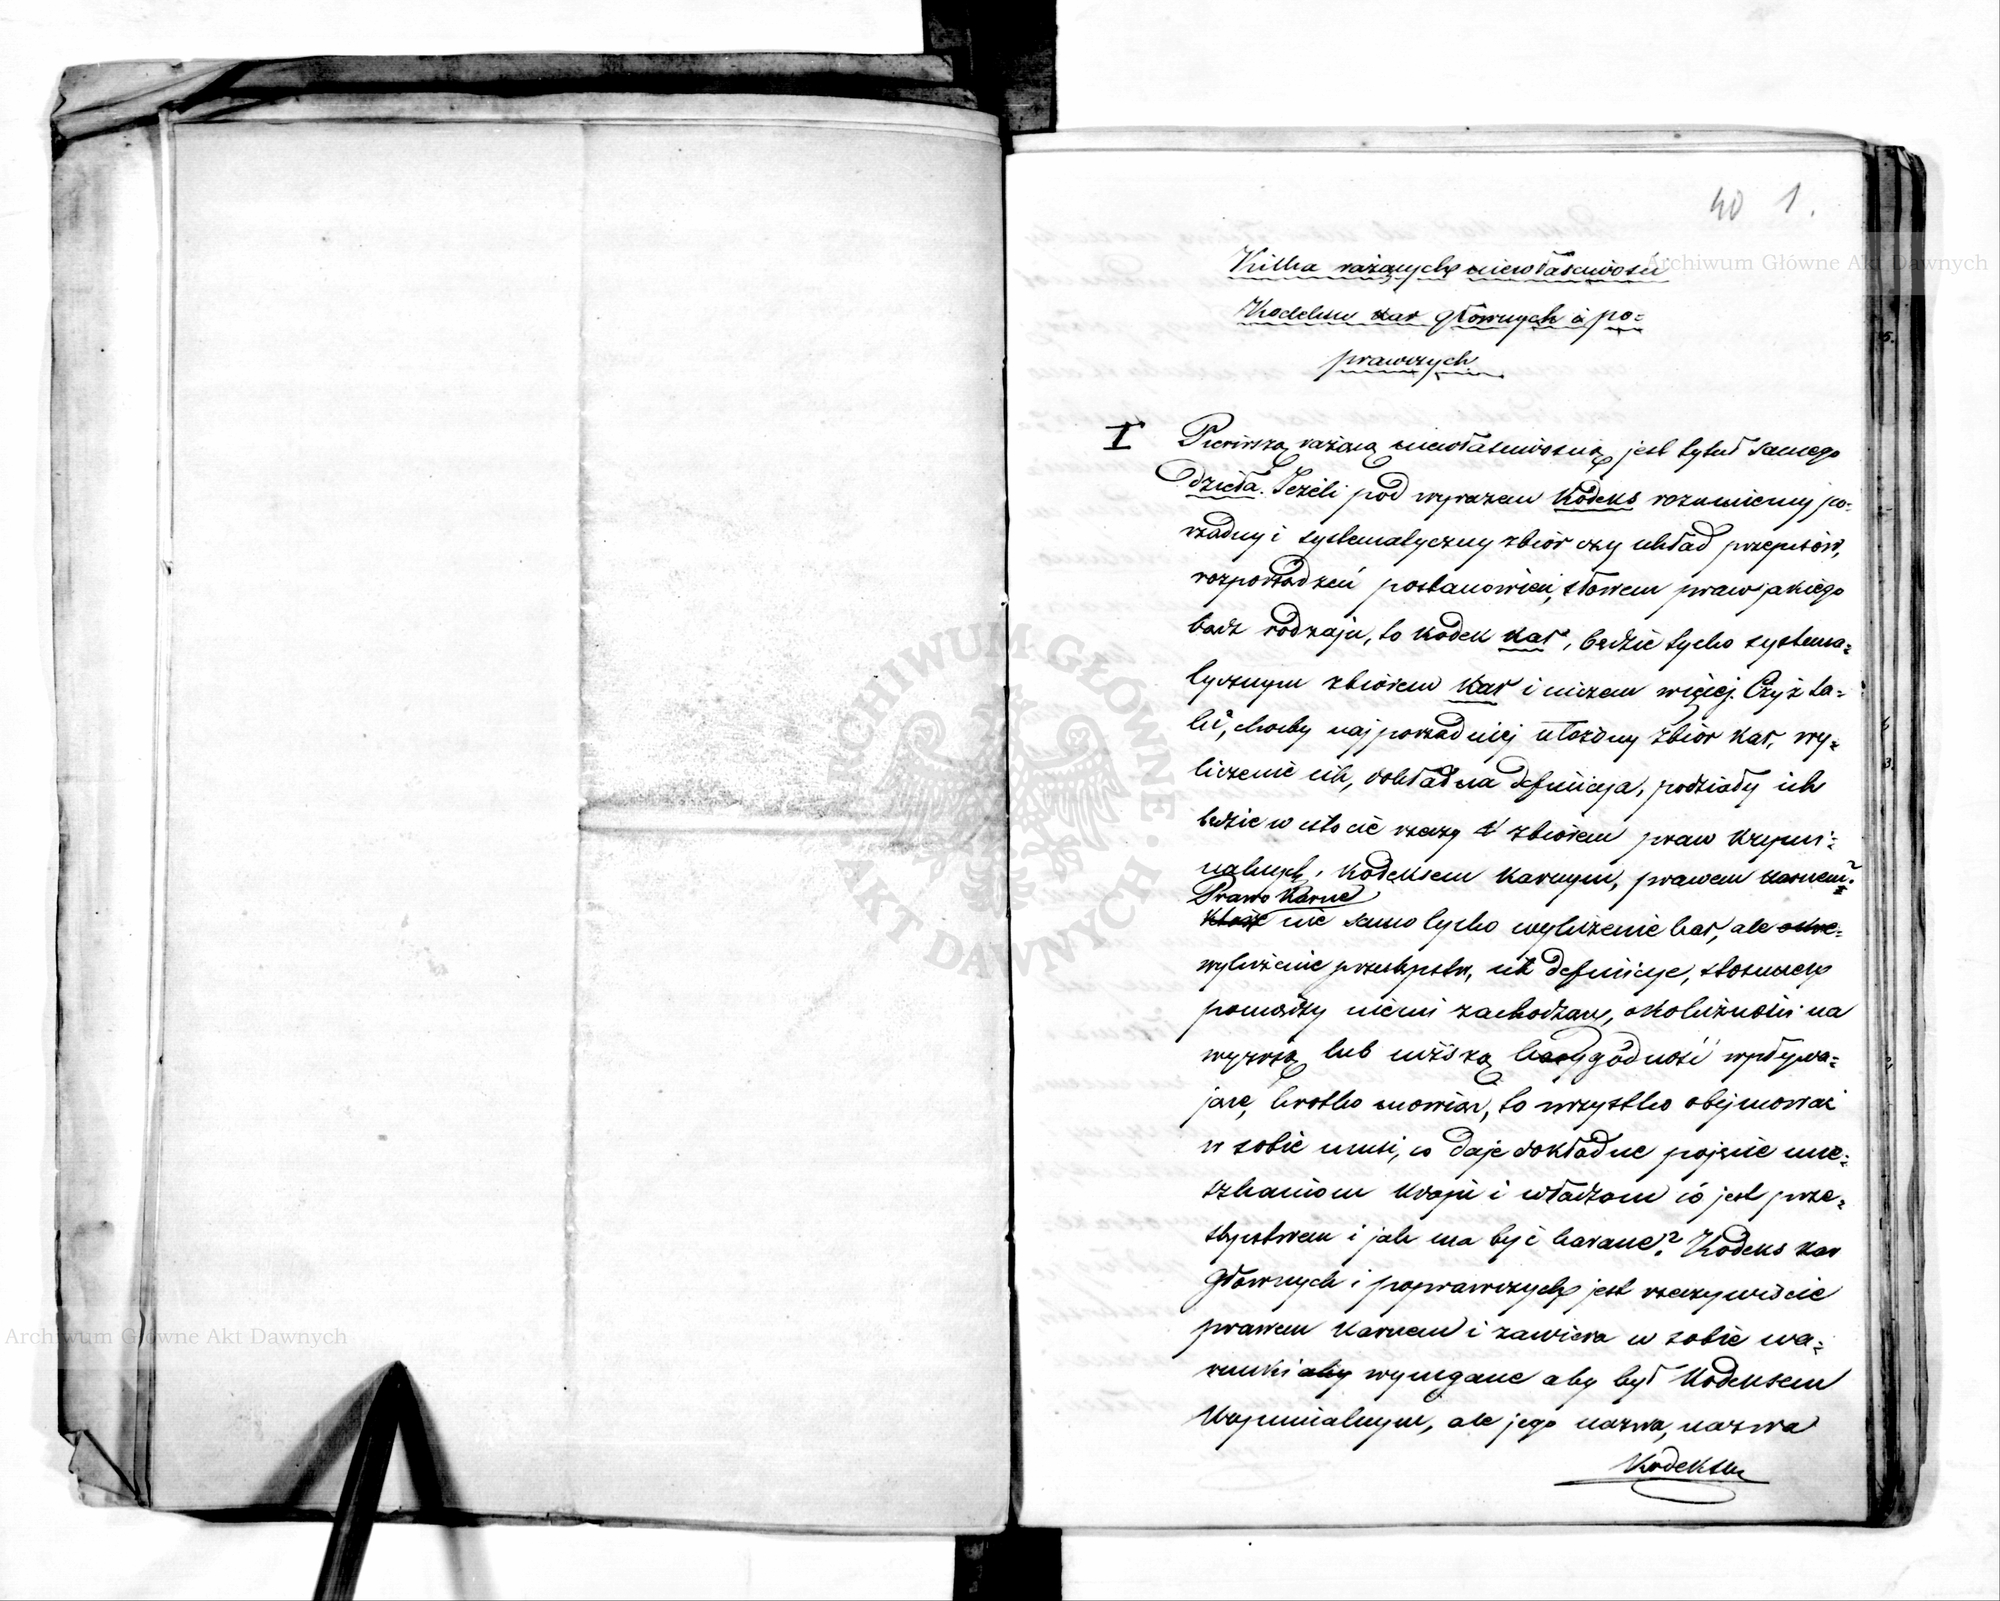 40 1.
Kilka rażących niewłaściwości
Kodeksu kar głównych i po=
prawczych
I Pierwszą rażącą niewłaściwością jest tytuł samego
dzieła. Jeżeli pod wyrazem Kodeks rozumiemy po=
rządny i systematyczny zbiór czy układ przepisów,
rozporządzeń postanowień, słowem praw jakiego
bądź rodzaju, to kodeks kar, będzie tylko systema=
tycznym zbiorem kar i niczem więcej. Czyż ta=
ki, choćby najporządniej ułożony zbiór kar, wy=
liczenie ich, dokładna definicja, podziały ich
będzie w istocie rzeczy zbiorem praw krymi=
nalnych, kodeksem karnym, prawem karnem?
Prawo Karne
nie samo tylko wyliczenie kar, ale
wyliczenie przestępstw, ich definicje, stosunek
pomiędzy niemi zachodzący, okoliczności na
wyższą lub niższą karygodność wpływa=
jące, krótko mówiąc, to wszystko obejmować
w sobie musi, co daje dokładne pojęcie mie=
szkańcom kraju i władzom co jest prze=
stępstwem i jak ma być karane? Kodeks kar
głównych i poprawczych jest rzeczywiście
prawem karnem i zawiera w sobie wa=
runki aby wymagane aby był Kodeksem
Kryminalnym, ale jego nazwa, nazwa
Kodeksu
Archiwum Główne Akt Dawnych
Archiwum Główne Akt Dawnych
ARCHIWUM GŁÓWNE · AKT DAWNYCH ·